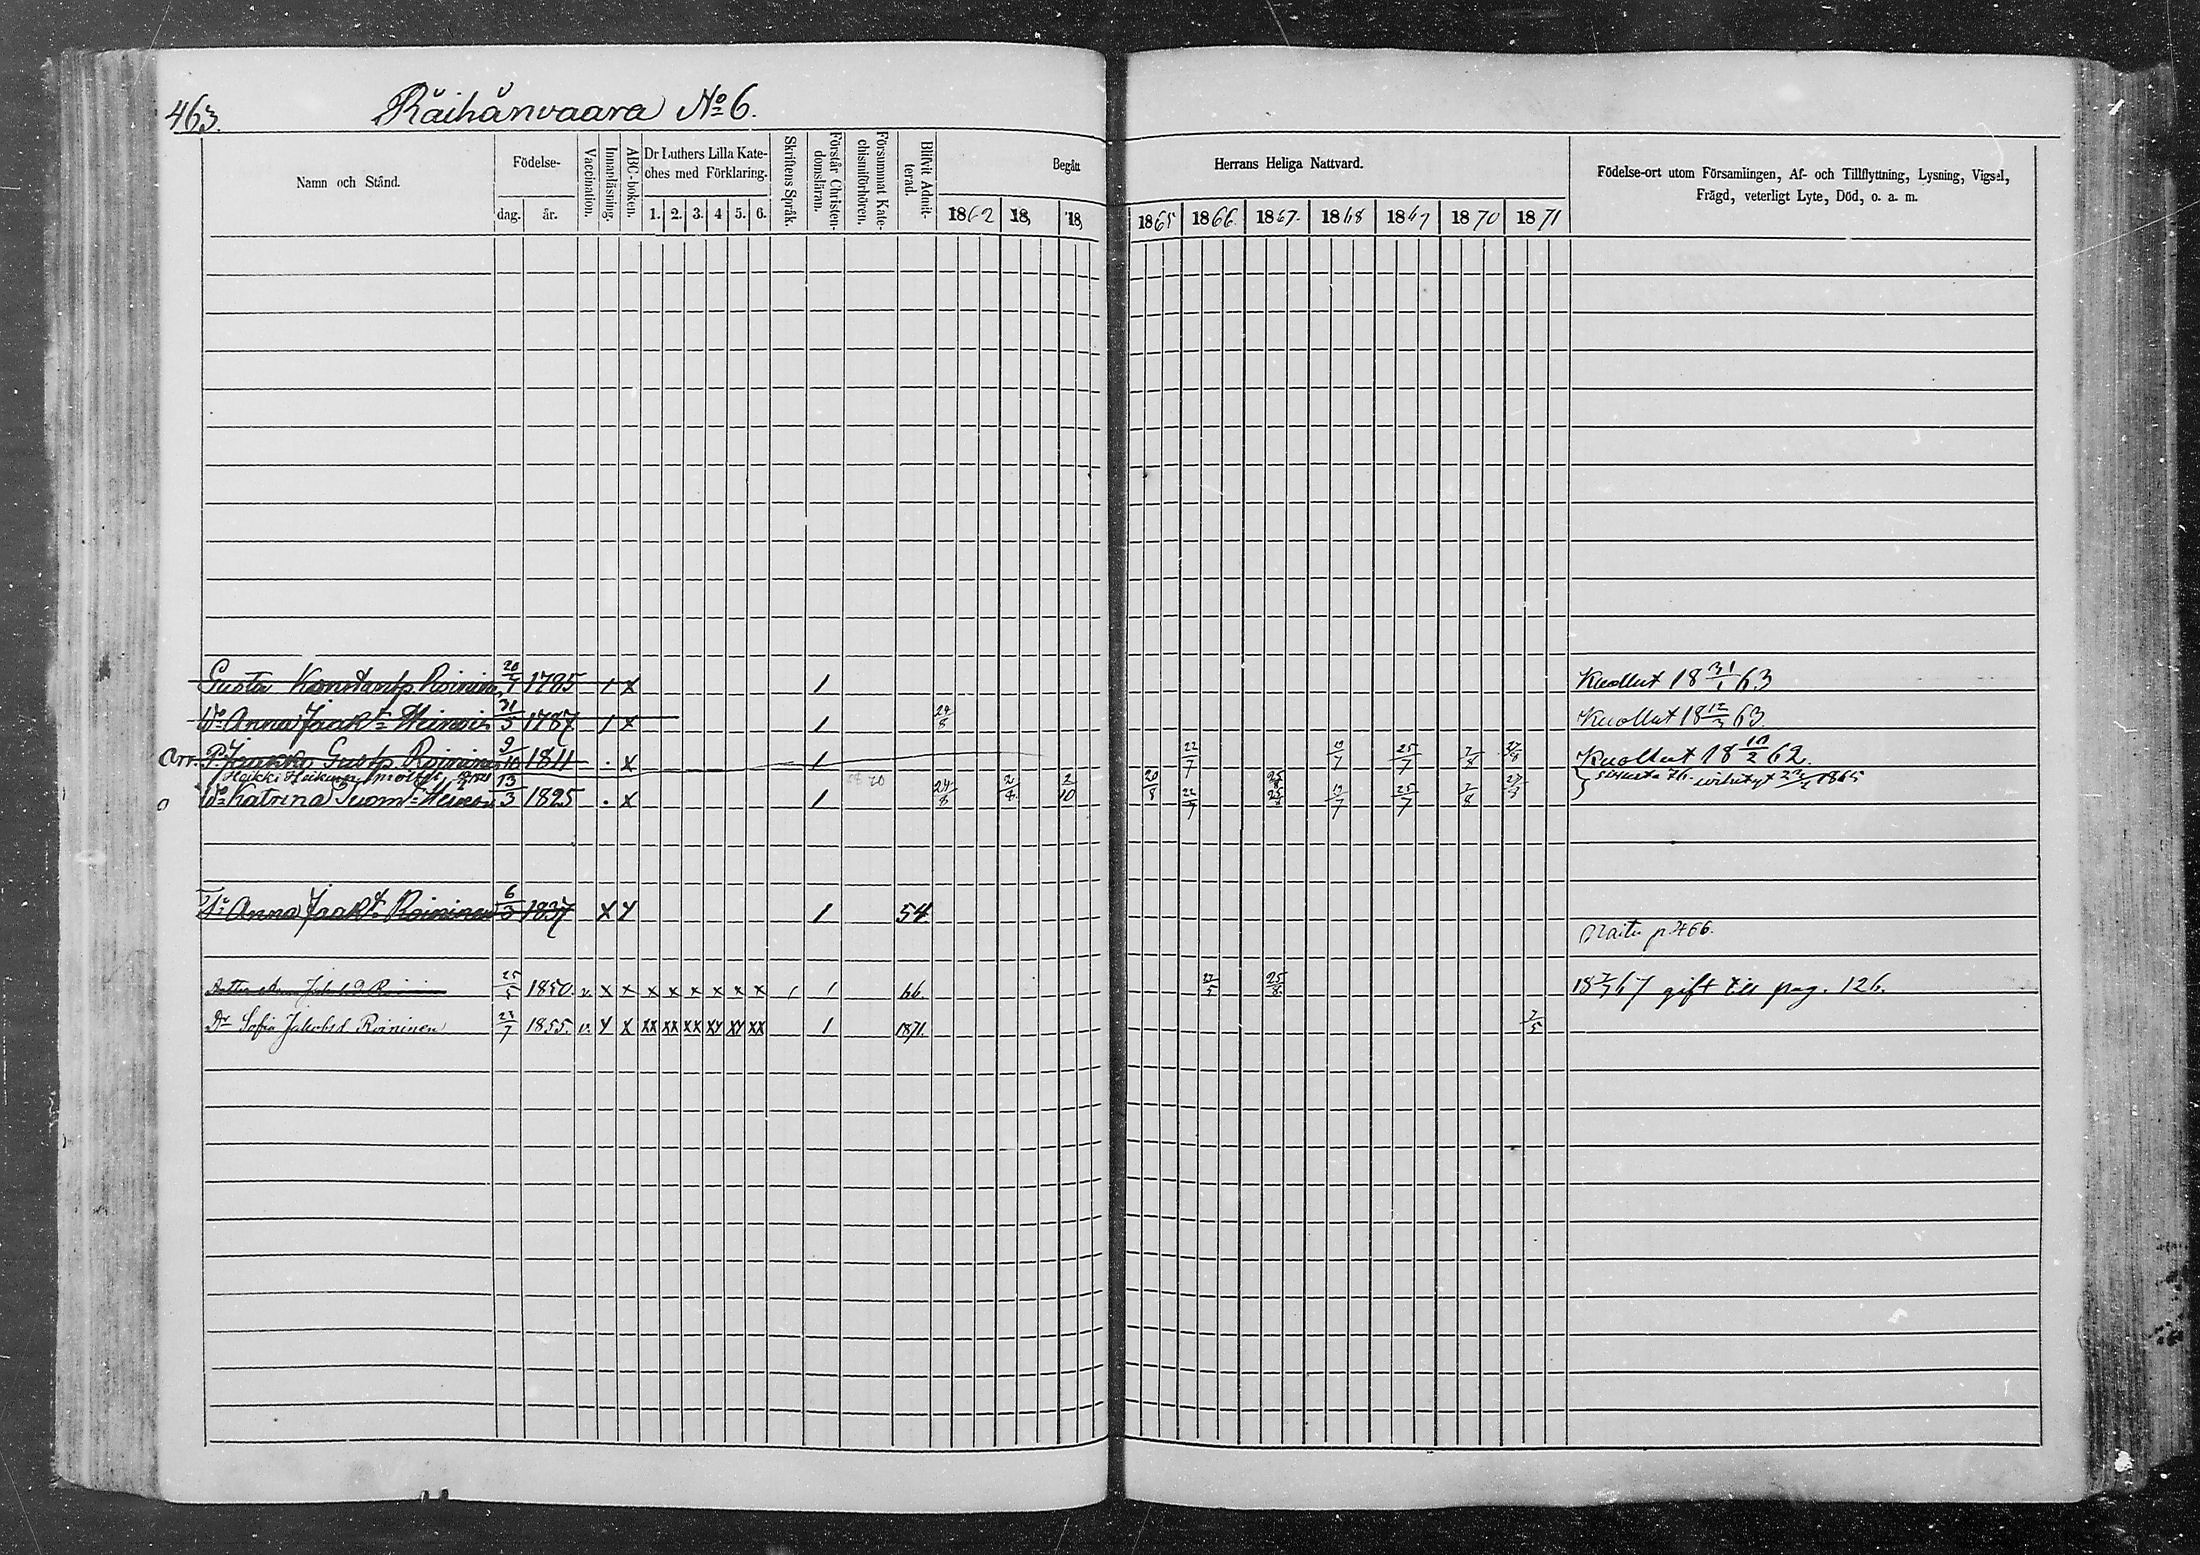 463.
Räihänvaara No 6.
Namn och Stånd.
Födelse-
dag.
år.
Vaccination.
Innanläsning.
ABC-boken.
Dr Luthers Lilla Kate-
ches med Förklaring.
1. 2. 3. 4 5. 6.
Skriftens Språk.
Förstår Christen-
domsläran.
Försummat Kate-
chismiförhören.
Blifvit Admit-
terad.
Begått
Herrans Heliga Nattvard.
1862 18, 18,
1865 1866. 1867. 1868 1869 1870 1871
Födelse-ort utom Församlingen, Af- och Tillflyttning, Lysning, Vigsel,
Frägd, veterligt Lyte, Död, o. a. m.
Gusta Konstantp. Roininen 20/1 1785 1 x 1 Kuollut 18 31/1 63
Wo Anna Jaakt. Heinoin 31/5 1787 1 x 1 24/8 Kuollut 18 12/3 63.
Arr. P. Jaakko Gustp. Roininen 9/10 1811 . x 1 22/7 19/7 25/7 7/8 Kuollut 18 2 62.
Heikki
Wo Katrina 13/3 1825 . x 1 24/8 2/10 20/8 22/7 25/8 19/7 25/7 7/8 1865
Anna Jaakt. Roininen 6/3 1837 x y 1 54
Naitu p. 466.
25/5 1850. v. x x x x x x x x 1 1 66. 25/8 18 67 gift till pag. 126.
Dr Sofia Jakobsd Roininen 23/7 1855. v. y x xx xx xx xy xy xx 1 1871. 7/5